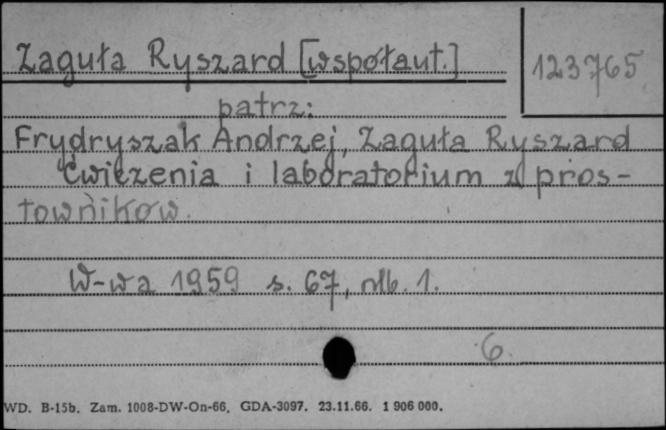 Zaguła Ryszard [współaut.]
123765
patrz:
Frydryszak Andrzej, Zaguła Ryszard
Ćwiczenia i laboratorium z pros-
towników.
W-wa 1959 s. 67, nlb. 1.
6.
WD. B-15b. Zam. 1008-DW-On-66. GDA-3097. 23.11.66. 1 906 000.